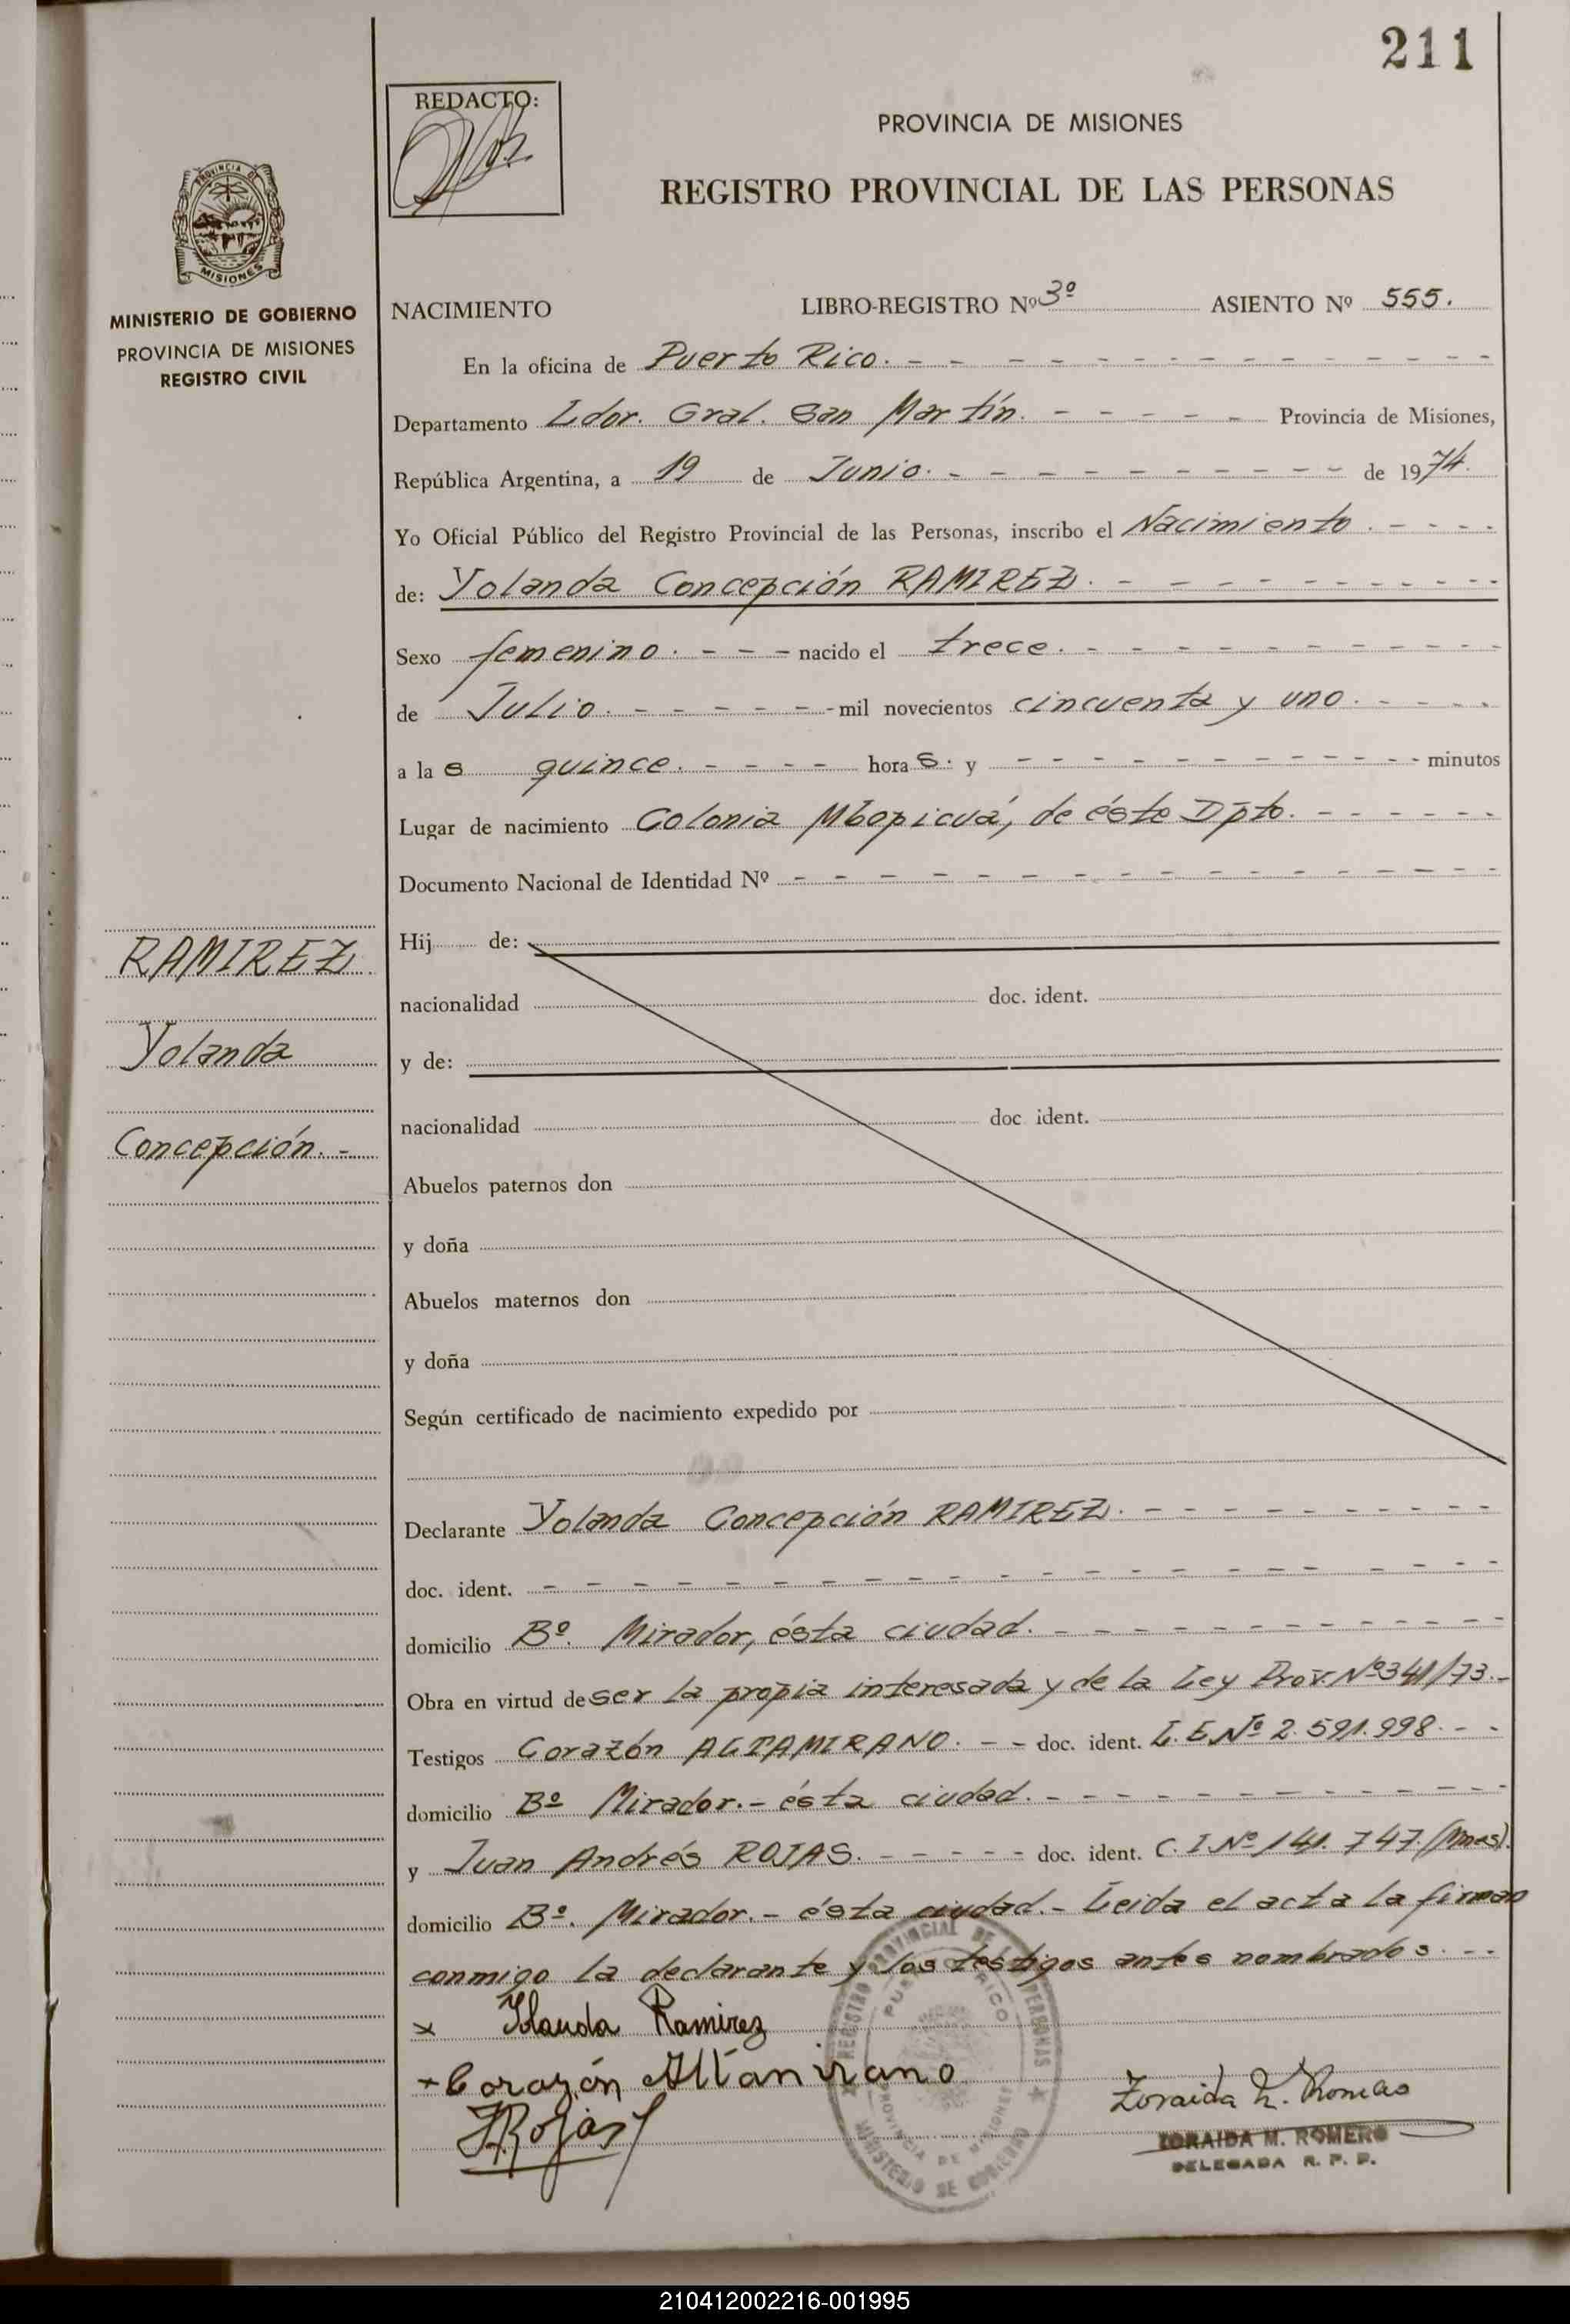 211
REDACTO:
PROVINCIA DE MISIONES
REGISTRO PROVINCIAL DE LAS PERSONAS
PROVINCIA DE
MISIONES
MINISTERIO DE GOBIERNO
PROVINCIA DE MISIONES
REGISTRO CIVIL
NACIMIENTO LIBRO-REGISTRO Nº 3º ASIENTO Nº 555.
En la oficina de Puerto Rico. - - - - - - - - - - - - -
Departamento Ldor. Gral. San Martín. - - - - - Provincia de Misiones,
República Argentina, a 19 de Junio. - - - - - - - - - - de 1974.
Yo Oficial Público del Registro Provincial de las Personas, inscribo el Nacimiento. - - - -
de: Yolanda Concepción RAMIREZ. - - - - - - - - - -
Sexo femenino. - - - nacido el trece. - - - - - - - - - -
de Julio. - - - - - - mil novecientos cincuenta y uno. - - - -
a las quince. - - - - horas. y - - - - - - - - - - minutos
Lugar de nacimiento Colonia Mbopicuá, de éste Dpto. - - - - - -
Documento Nacional de Identidad Nº - - - - - - - - - - - - - - - -
Hij de:
nacionalidad doc. ident.
y de:
nacionalidad doc ident.
Abuelos paternos don
y doña
Abuelos maternos don
y doña
Según certificado de nacimiento expedido por
RAMIREZ
Yolanda
Concepción. -
Declarante Yolanda Concepción RAMIREZ. - - - - - - - - - -
doc. ident. - - - - - - - - - - - - - - - - - - - -
domicilio Bº. Mirador, ésta ciudad. - - - - - - - - - - -
Obra en virtud de ser la propia interesada y de la Ley Prov. Nº 341/73. -
Testigos Corazón ALTAMIRANO. - - doc. ident. L. E. Nº 2.591.998. - -
domicilio Bº Mirador. - ésta ciudad. - - - - - - - - - - -
y Juan Andrés ROJAS. - - - - - doc. ident. C. I. Nº 141.747. (Mnes).
domicilio Bº. Mirador. - ésta ciudad. - Leida el acta la firman
conmigo la declarante y los testigos antes nombrados. - -
x Yolanda Ramirez
x Corazón Altamirano
JRojas
REGISTRO PROVINCIAL DE LAS PERSONAS
PUERTO RICO
PROVINCIA DE MISIONES
MINISTERIO DE GOBIERNO
Zoraida M. Romero
ZORAIDA M. ROMERO
DELEGADA R. P. P.
210412002216-001995